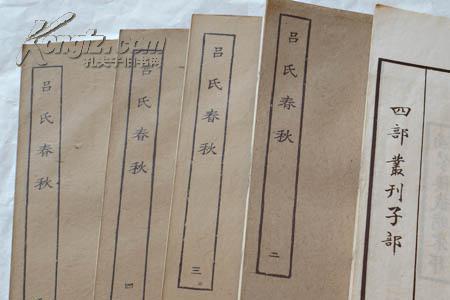 Kongfz.com
孔夫子旧书网
吕氏春秋
吕氏春秋
四
吕氏春秋
三
吕氏春秋
二
四部叢刊子部